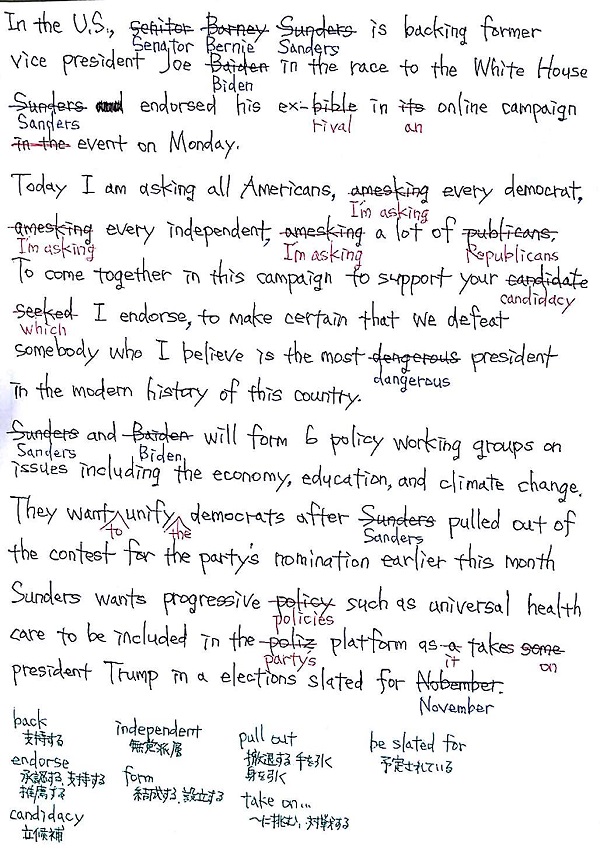 In the U.S., senitor Barney Sunders is backing former
Senator Bernie Sanders
vice president Joe Baiden in the race to the White House
Biden
Sunders and endorsed his ex-bible in its online campaign
Sanders rival an
in the event on Monday.
Today I am asking all Americans, amesking every democrat,
I'm asking
amesking every independent, amesking a lot of publicans.
I'm asking I'm asking Republicans
To come together in this campaign to support your candidate
candidacy
seeked I endorse, to make certain that we defeat
which
somebody who I believe is the most dengerous president
dangerous
in the modern history of this country.
Sunders and Baiden will form 6 policy working groups on
Sanders Biden
issues including the economy, education, and climate change.
They want unify democrats after Sunders pulled out of
to the Sanders
the contest for the party's nomination earlier this month
Sunders wants progressive policy such as universal health
policies
care to be included in the poliz platform as a takes some
party's it on
president Trump in a elections slated for Nobember.
November
back independent pull out be slated for
支持する 無党派層 撤退する 手を引く 予定されている
endorse form 身を引く
承認する、支持する 結成する、設立する take on...
推薦する 〜に挑む、対戦する
candidacy
立候補